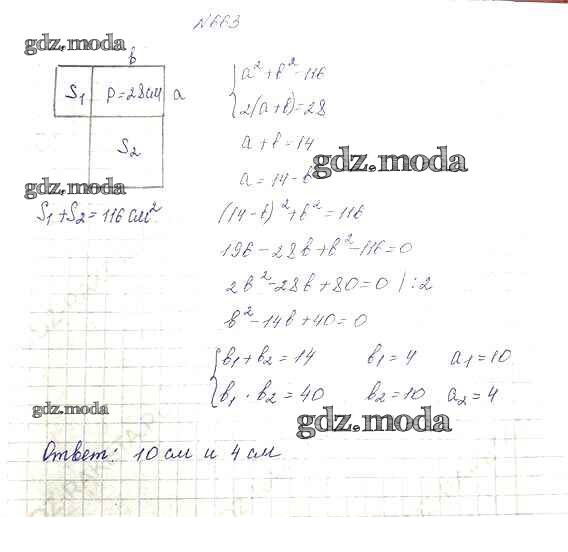 N663
gdz.moda
b
S₁ P=28см a
S₂
gdz.moda
S₁+S₂=116см²
a²+b²=116
2(a+b)=28
a+b=14
gdz.moda
a=14-b
(14-b)²+b²=116
196-28b+b²-116=0
2b²-28b+80=0 |:2
b²-14b+40=0
b₁+b₂=14 b₁=4 a₁=10
b₁·b₂=40 b₂=10 a₂=4
gdz.moda
gdz.moda
Ответ: 10см и 4см